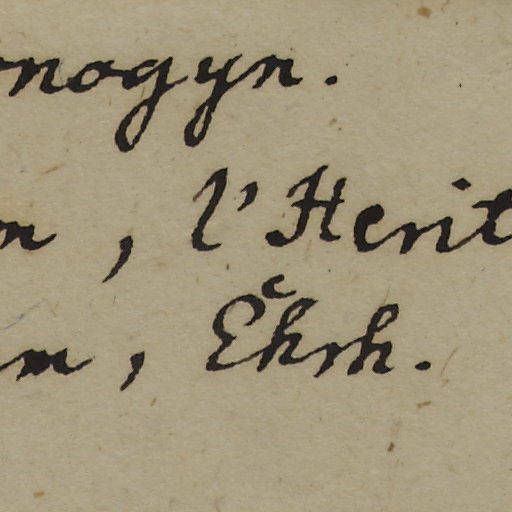 onogyn.
m, l'Herit
um, Ehrh.